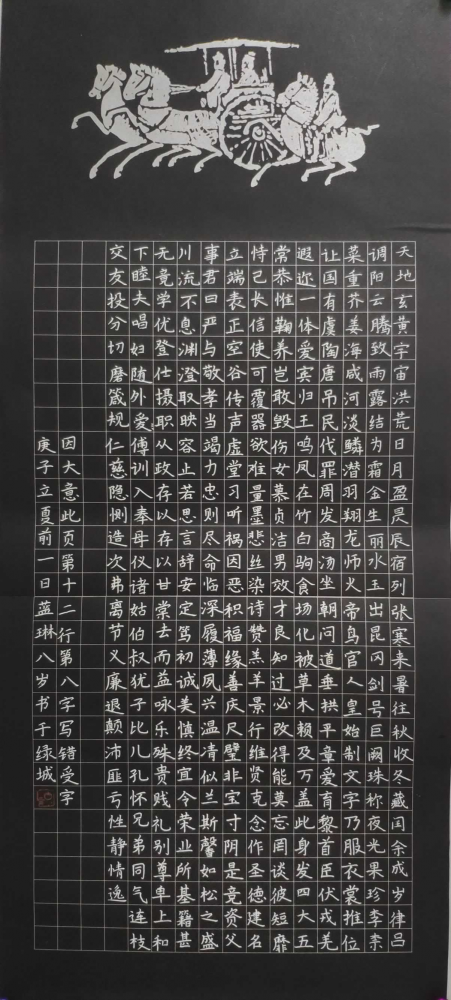 天地玄黄宇宙洪荒日月盈昃辰宿列张寒来暑往秋收冬藏闰余成岁律吕
调阳云腾致雨露结为霜金生丽水玉出昆冈剑号巨阙珠称夜光果珍李柰
菜重芥姜海咸河淡鳞潜羽翔龙师火帝鸟官人皇始制文字乃服衣裳推位
让国有虞陶唐吊民伐罪周发商汤坐朝问道垂拱平章爱育黎首臣伏戎羌
遐迩一体爱宾归王鸣凤在竹白驹食场化被草木赖及万盖此身发四大五
常恭惟鞠养岂敢毁伤女慕贞洁男效才良知过必改得能莫忘罔谈彼短靡
恃己长信使可覆器欲难量墨悲丝染诗赞羔羊景行维贤克念作圣德建名
立端表正空谷传声虚堂习听祸因恶积福缘善庆尺璧非宝寸阴是竞资父
事君曰严与敬孝当竭力忠则尽命临深履薄夙兴温清似兰斯馨如松之盛
川流不息渊澄取映容止若思言辞安定笃初诚美慎终宜令荣业所基籍甚
无竟学优登仕摄职从政存以存以甘棠去而益咏乐殊贵贱礼别尊卑上和
下睦夫唱妇随外爱傅训入奉母仪诸姑伯叔犹子比儿孔怀兄弟同气连枝
交友投分切磨箴规仁慈隐恻造次弗离节义廉退颠沛匪亏性静情逸
因大意此页第十二行第八字写错受字
庚子立夏前一日蓝琳八岁书于绿城